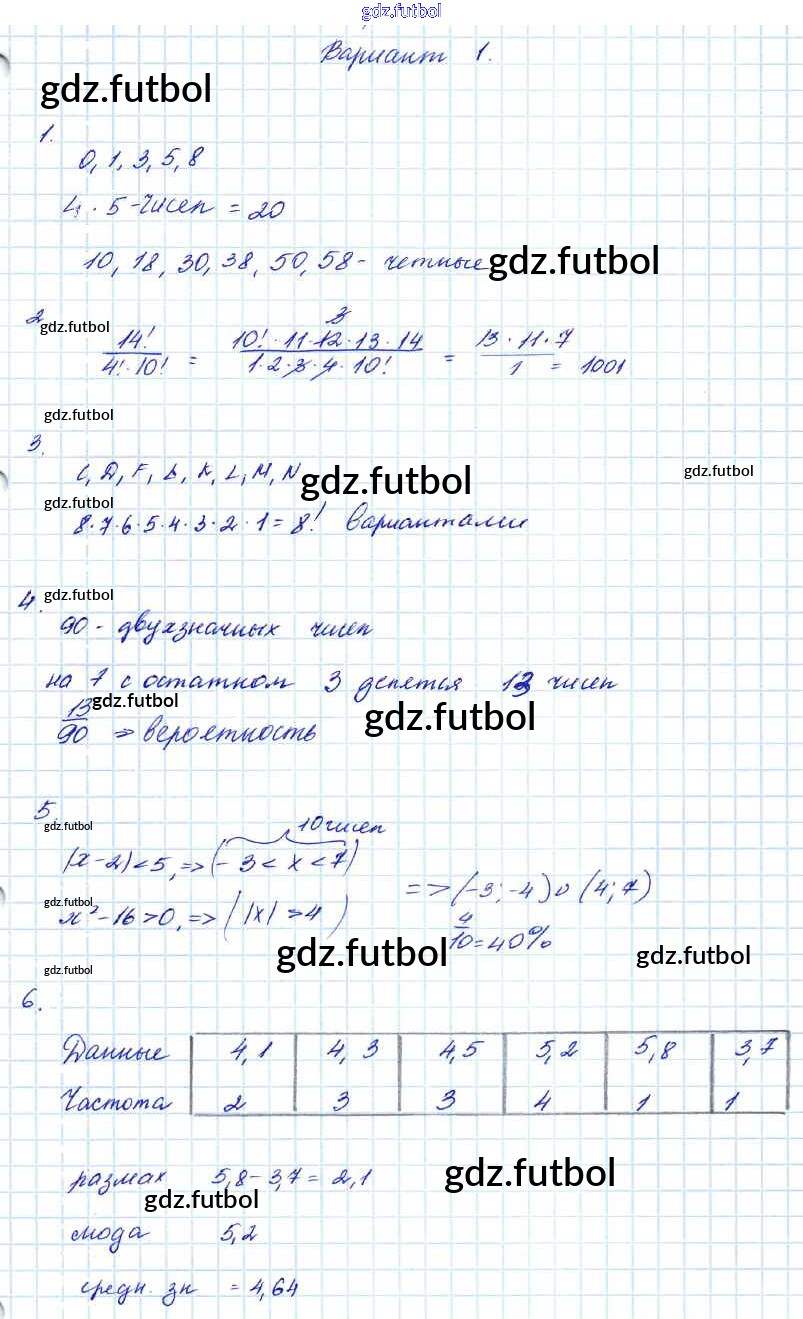 gdz.futbol
Вариант 1.
gdz.futbol
1.
0, 1, 3, 5, 8
4 · 5 - чисел = 20
10, 18, 30, 38, 50, 58 - четные gdz.futbol
2
gdz.futbol
14! / 4!·10! = 10!·11·12·13·14 / 1·2·3·4·10! = 13·11·7 / 1 = 1001
3
gdz.futbol
3.
C, D, F, A, K, L, M, N gdz.futbol gdz.futbol
gdz.futbol
8·7·6·5·4·3·2·1 = 8! вариантами
gdz.futbol
4.
90 - двухзначных чисел
на 7 с остатком 3 делятся 13 чисел
gdz.futbol
13/90 => вероятность gdz.futbol
5.
gdz.futbol
10 чисел
|x-2|<5, => (-3<x<7)
gdz.futbol
=> (-3; -4) ∪ (4; 7)
x²-16>0, => (|x|>4)
4/10 = 40%
gdz.futbol gdz.futbol
gdz.futbol
6.
Данные 4,1 4,3 4,5 5,2 5,8 3,7
Частота 2 3 3 4 1 1
размах 5,8-3,7 = 2,1 gdz.futbol
gdz.futbol
мода 5,2
средн. зн = 4,64